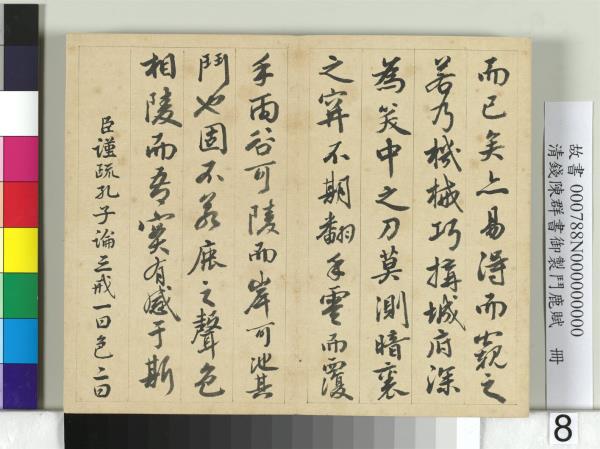 而已矣亦易得而窺之
若乃機械巧搆城府深
為笑中之刀莫測暗裏
之穽不期翻手雲而覆
手雨谷可陵而岸可池其
鬥也固不若鹿之聲色
相陵而吾實有感于斯
臣謹疏孔子論三戒一曰色二曰
故書 000788N000000000
清錢陳群書御製鬥鹿賦 冊
8